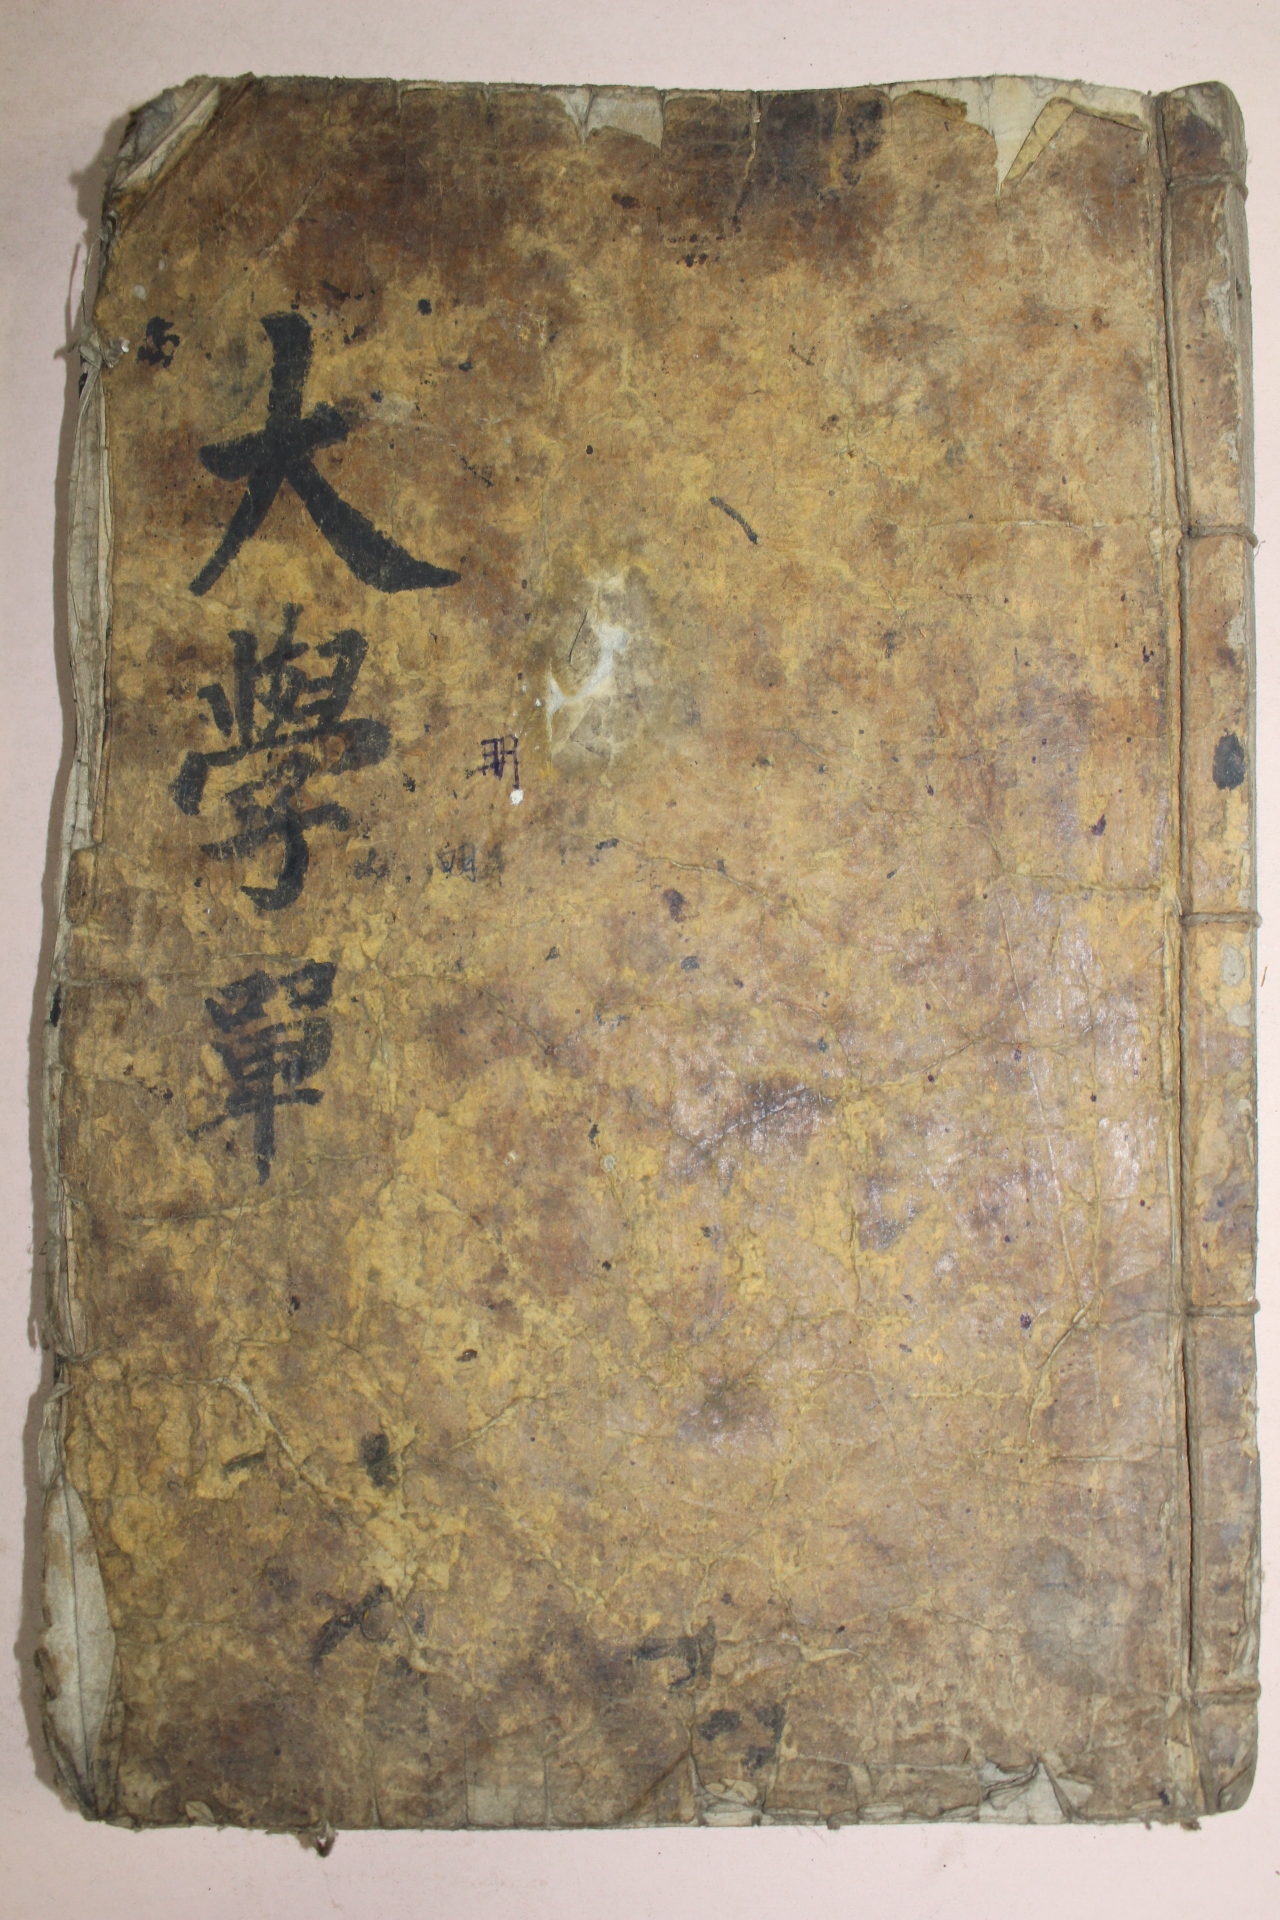 大學單
明